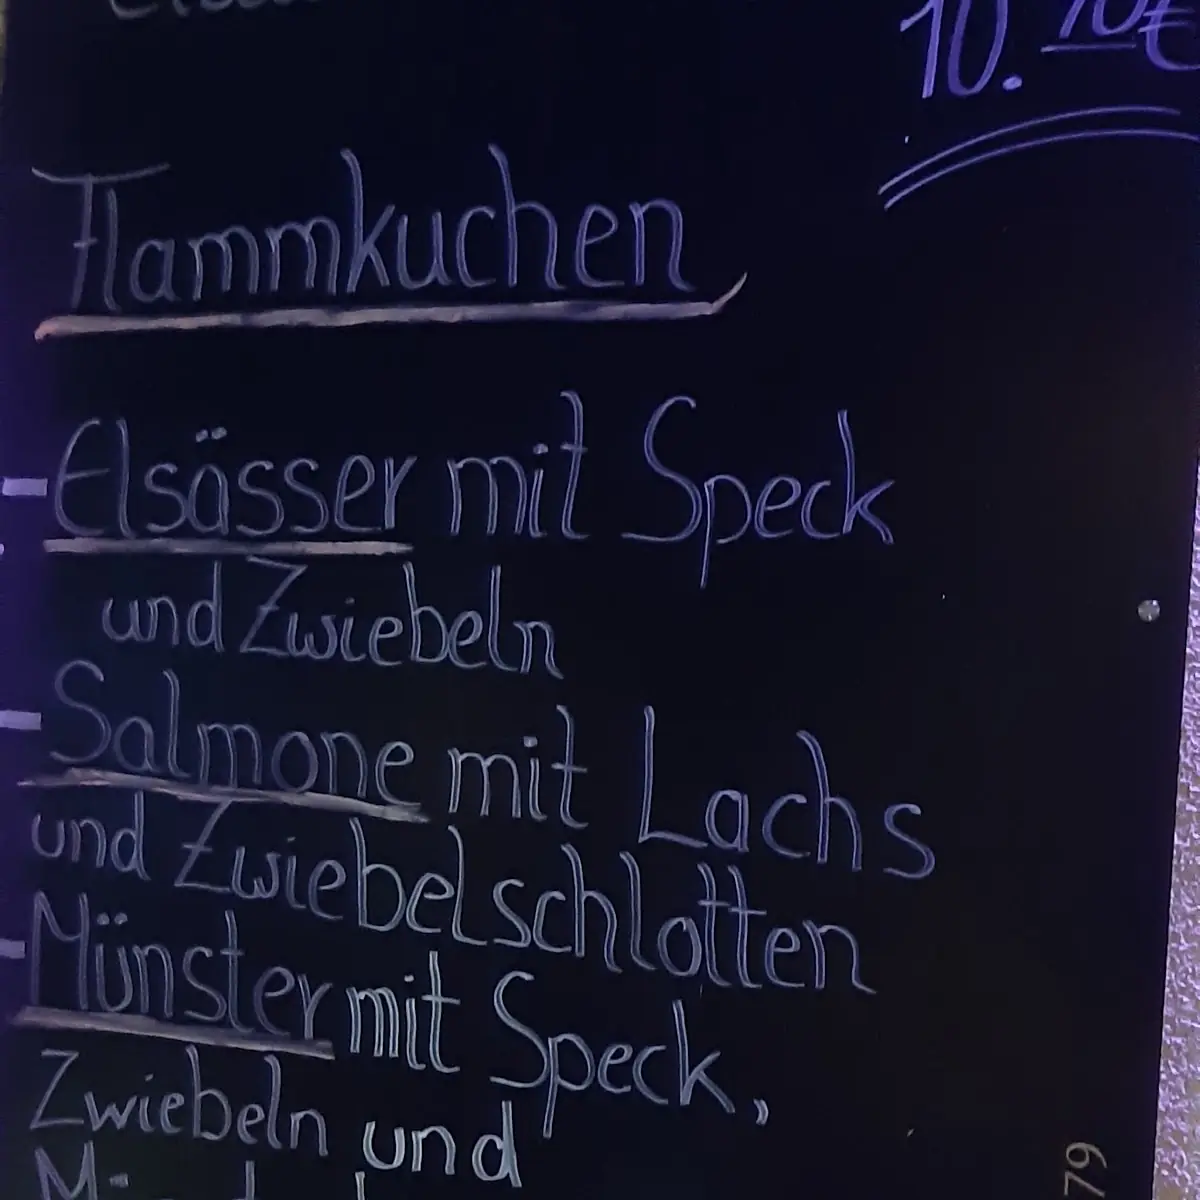 10.
Flammkuchen
Elsässer mit Speck
und Zwiebeln
Salmone mit Lachs
und Zwiebelschlotten
Münster mit Speck,
Zwiebeln und
79